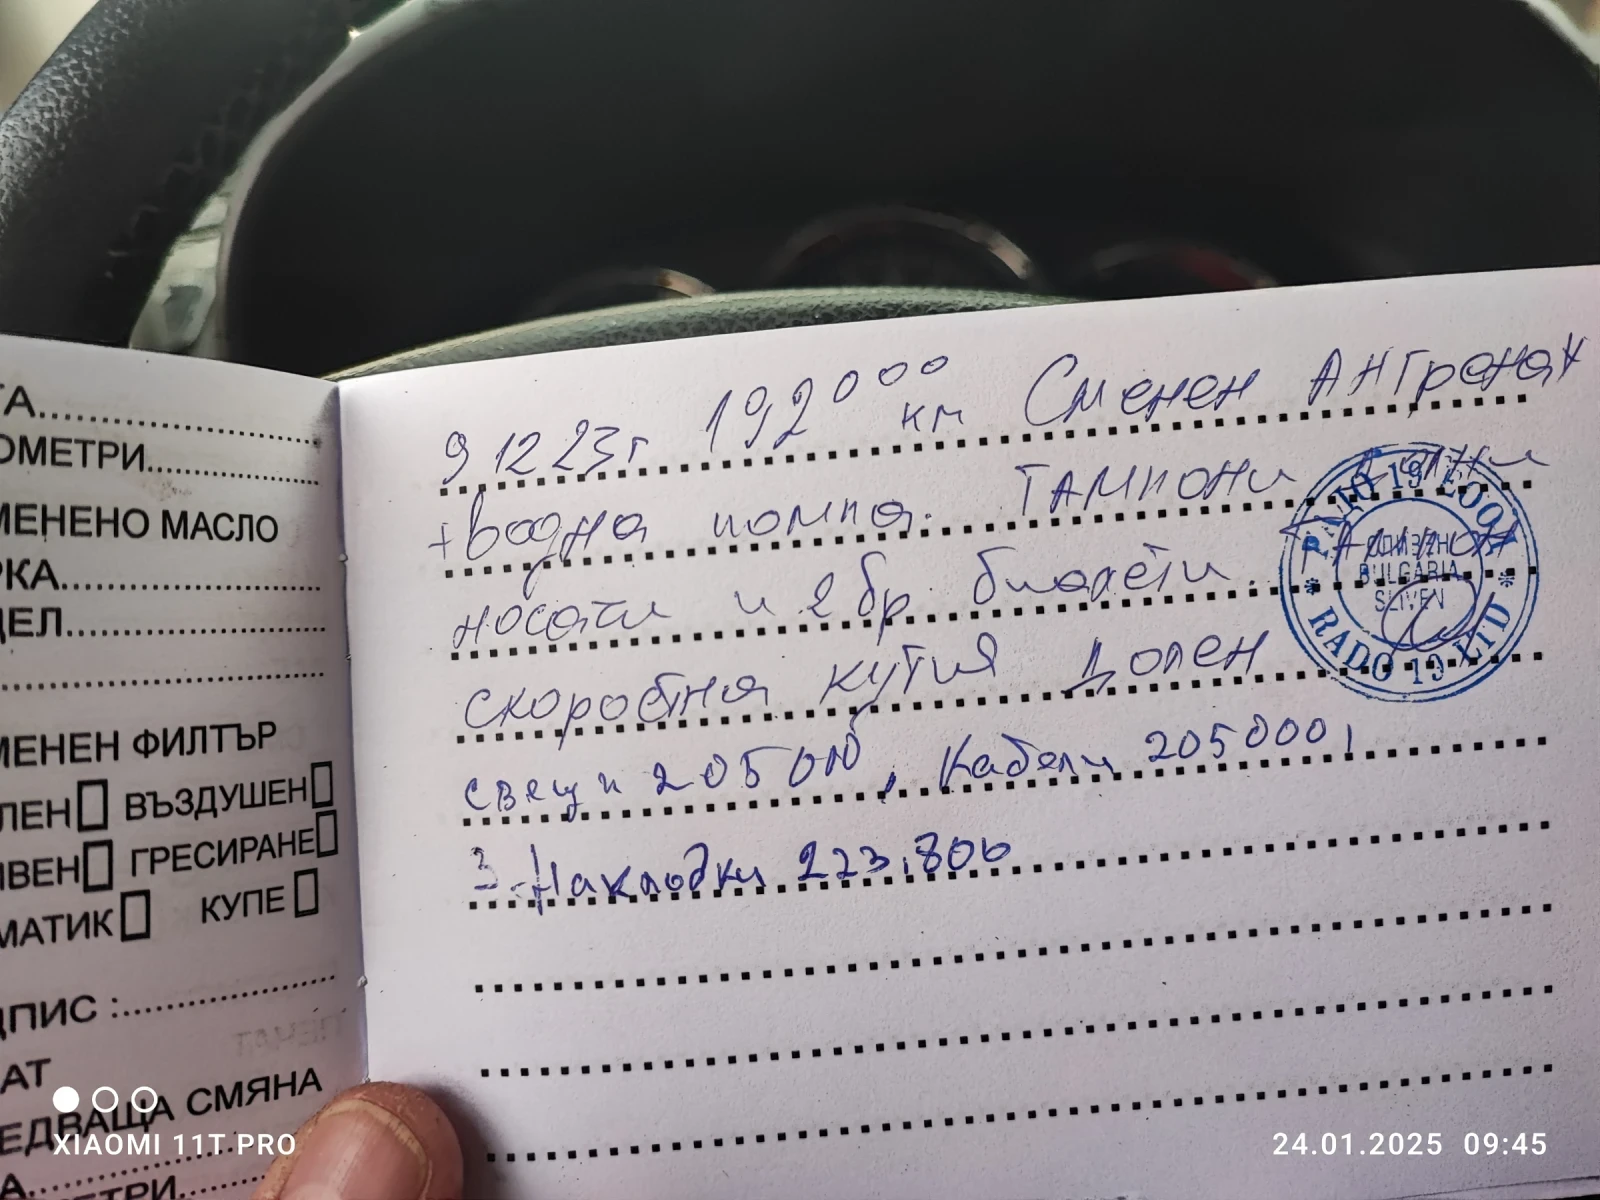 ТА
ОМЕТРИ
МЕНЕНО МАСЛО
РКА
ДЕЛ
МЕНЕН ФИЛТЪР
ЛЕН ВЪЗДУШЕН
ИВЕН ГРЕСИРАНЕ
МАТИК КУПЕ
ДПИС :
АТ
ЕДВАЩА СМЯНА
А
МЕТРИ
9 12 23г 192000 км Сменен Ангренаж
+ водна помпа. ТАМПОНИ
носачи и 2 бр. биалети. ТАМПОН
скоростна кутия Долен
свещи 205000, Кабели 205000,
З. Накладки 223.800
СЛИВЕН
BULGARIA
SLIVEN
RADO 19 LTD
XIAOMI 11T PRO
24.01.2025 09:45